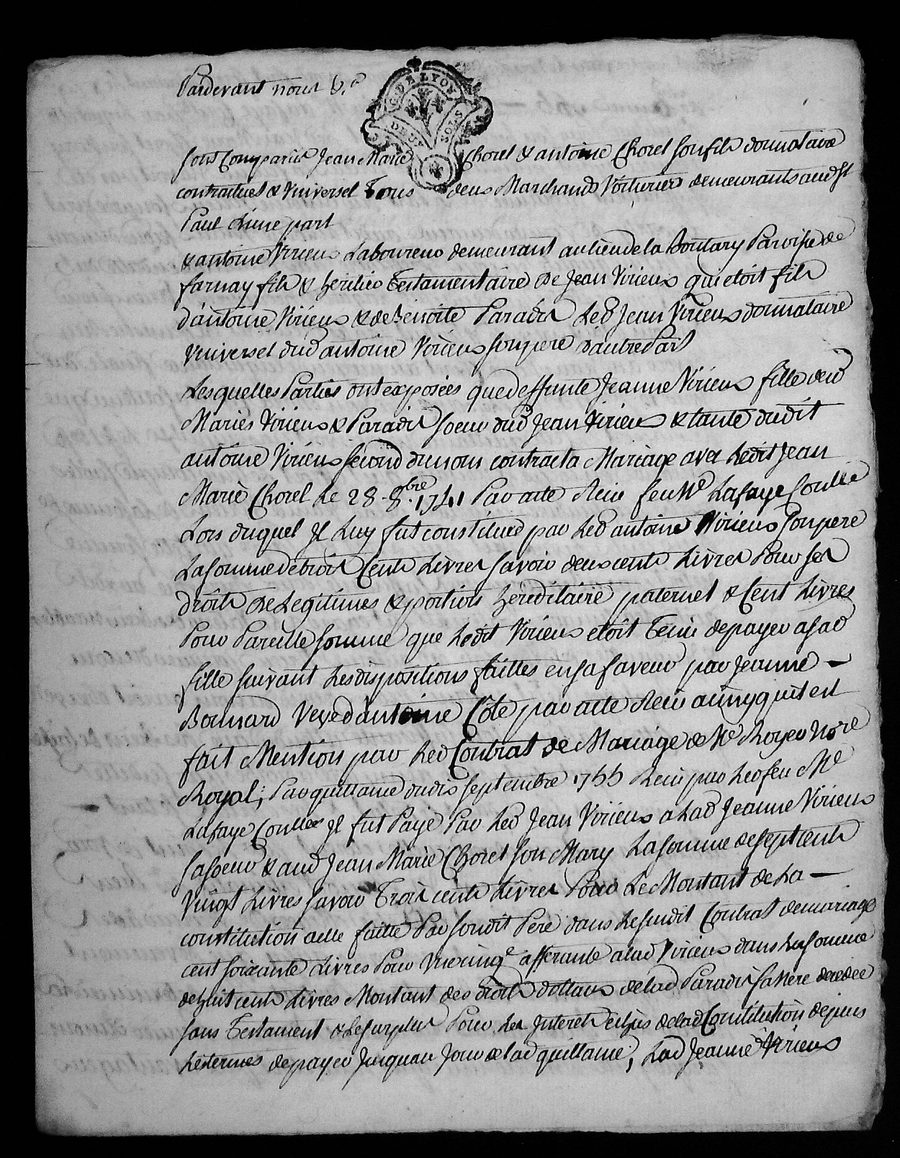 Pardevant nous &.a
G. DE LYON
DEUX SOLS
sont Comparus Jean Marie Chorel & antoine Chorel son fils donnataire
contractuel & Universel Tous deux Marchands Voituriers demeurants aud St
Paul d'une part
& antoine Virieux Laboureur demeurant au lieu de la Paroisse de
farnay fils & héritier Testamentaire de Jean Virieux qui étoit fils
d'antoine Virieux & de Benoite Paradis Led Jean Virieux donnataire
Universel dud antoine Virieux son pere d'autre Part
Lesquelles Parties ont exposées que deffunte Jeanne Virieux fille desd
Mariés Virieux & Paradis soeur dud Jean Virieux & tante dudit
antoine Virieux second du nom contracta Mariage avec Ledit Jean
Marie Chorel Le 28 8.bre 1741 Par acte Reçu feu Me Lafaye
Lors duquel Jl Luy fut constitué par Led antoine Virieux son pere
La somme de trois Cents Livres savoir deux cents Livres Pour ses
droits de Legitimes & portion héréditaire paternel & Cent Livres
Pour Pareille somme que Ledit Virieux etoit Tenu de payer a sad
fille suivant Les dispositions faittes en sa faveur par Jeanne
Bonnard Veve d'antoine Cote par acte Reçu ainsy qu'il est
fait Mention par Led Contrat de Mariage de Me Royer No.re
Royal; Par quittance du dix septembre 1766 Reçu par Led feu Me
Lafaye Jl fut Payé Par Led Jean Virieux a Lad Jeanne Virieux
sa soeur & aud Jean Marie Chorel son Mary La somme de sept cents
Vingt Livres savoir Trois cents Livres Pour Le Montant de La
constitution a elle faitte Par sondit Père dans Le susdit Contrat de mariage
cent soixante Livres Pour afferante a Lad Virieux dans La somme
de huit cents Livres Montant des droits dottaux de Lad Paradis sa Mere decedée
sans Testament & Le surplus Pour Les Interets de Lad Constitution depuis
Les termes de payer Jusquau Jour de Lad quittance; Lad Jeanne Virieux